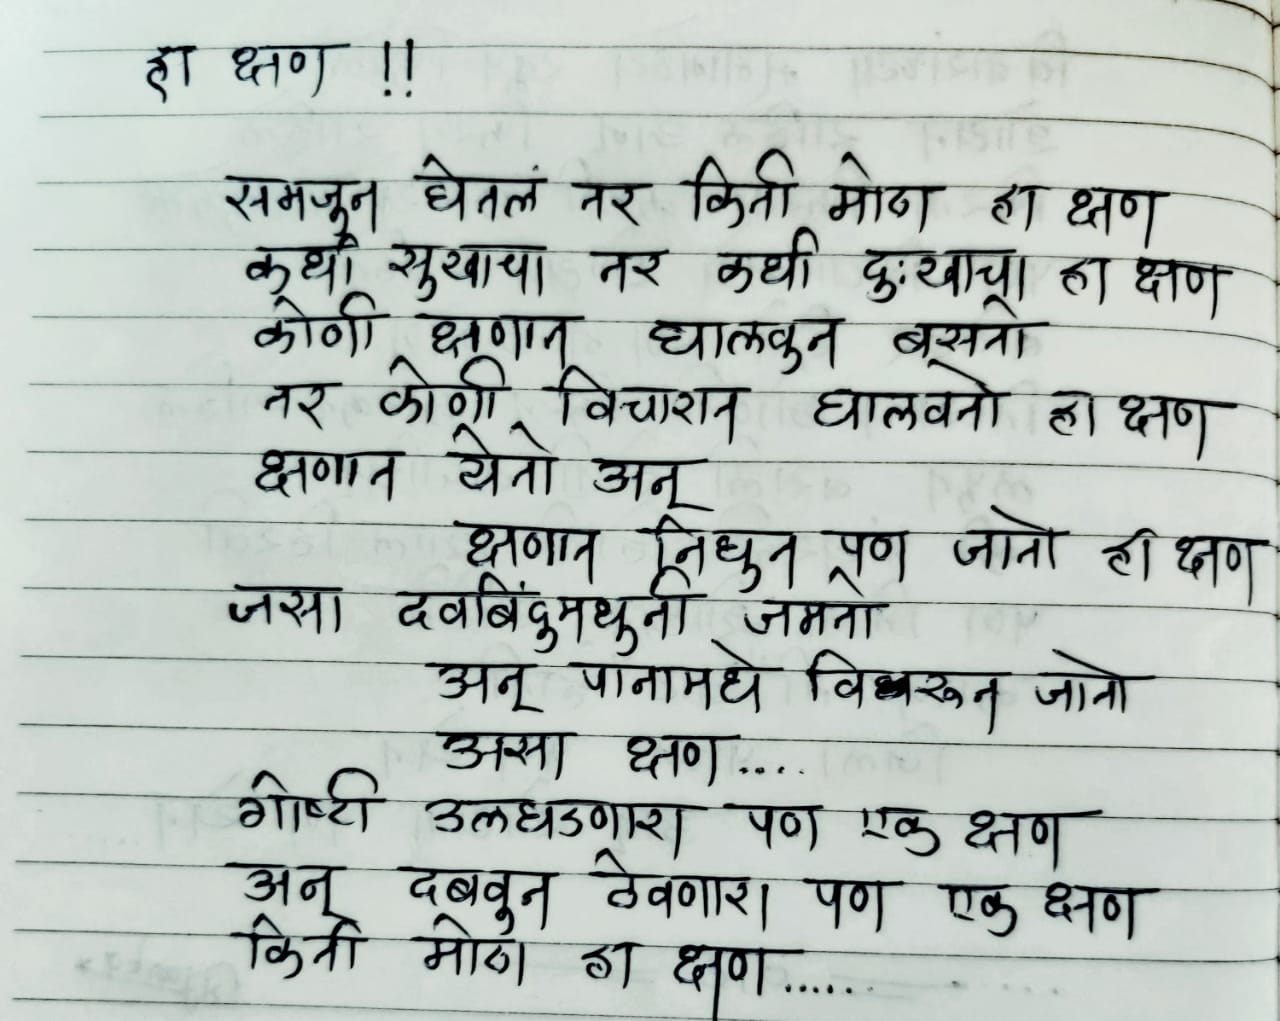 हा क्षण !!
समजुन घेतलं तर किती मोठा हा क्षण
कधी सुखाचा तर कधी दुःखाचा हा क्षण
कोणी क्षणात घालवुन बसतो
तर कोणी विचारात घालवतो हा क्षण
क्षणात येतो अन्
क्षणात निघुन पण जातो हा क्षण
जसा दवबिंदुमधुनी जमतो
अन् पानामधे विखरुन जातो
असा क्षण....
गोष्टी उलघडणारा पण एक क्षण
अन् दबवुन ठेवणारा पण एक क्षण
किती मोठा हा क्षण......